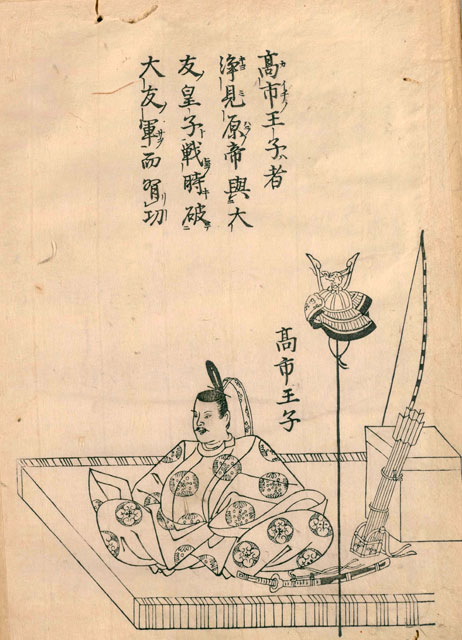 高市王子者
淨見原帝與大
友皇子戰時破
大友軍而有功
高市王子